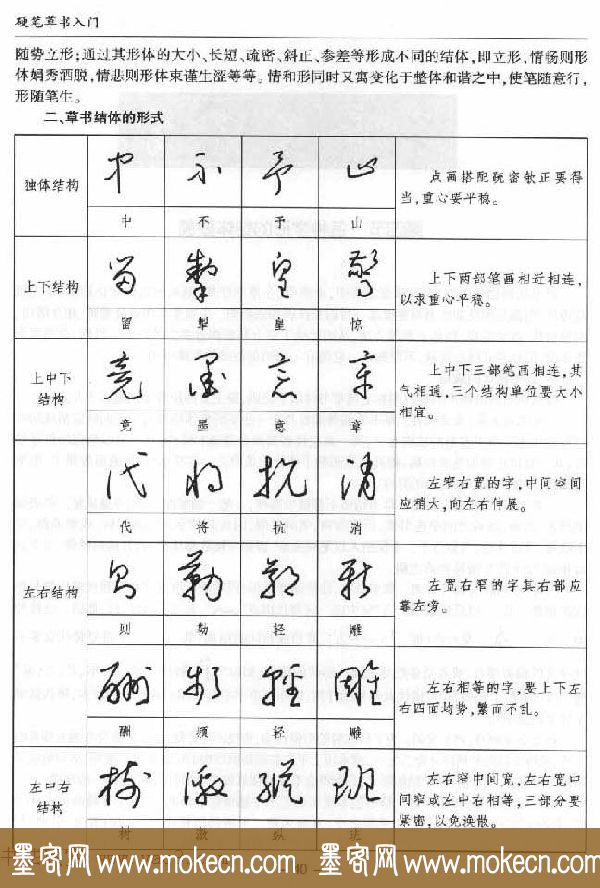 硬笔草书入门
随势立形;通过其形体的大小、长短、疏密、斜正、参差等形成不同的结体,即立形,情畅则形
体娟秀洒脱,情悲则形体束谨生涩等等。情和形同时又寓变化于整体和谐之中,使笔随意行,
形随笔生。
二、草书结体的形式
独体结构
中 不 予 山
点画搭配疏密敧正要得
当,重心要平稳。
上下结构
留 犁 皇 惊
上下两部笔画相近相连,
以求重心平稳。
上中下
结构
竟 墨 意 章
上中下三部笔画相连,其
气相通,三个结构单位要大小
相宜。
左右结构
代 将 抗 消
左窄右宽的字,中间空间
应稍大,向左右伸展。
则 勒 雕
左宽右窄的字其右部应
靠左旁。
酬 须 轻 雕
左右相等的字,要上下左
右四面均势,繁而不乱。
左中右
结构
树 激
左右窄中间宽,左右宽中
间窄或左中右相等,三部分要
紧密,以免涣散。
墨客网 www.mokecn.com 墨客网 www.mokecn.com